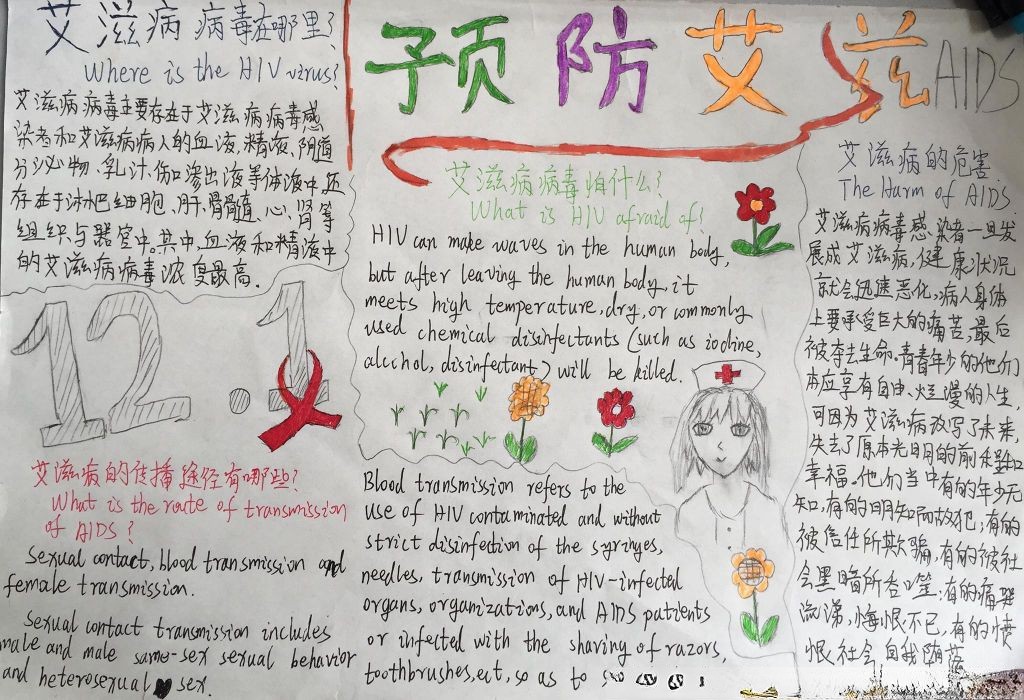 预防艾滋AIDS
艾滋病病毒在哪里?
Where is the HIV virus?
艾滋病病毒主要存在于艾滋病病毒感
染者和艾滋病病人的血液、精液、阴道
分泌物、乳汁、伤口渗出液等体液中,还
存在于淋巴细胞、肝、骨髓、心、肾等
组织与器官中,其中,血液和精液中
的艾滋病病毒浓度最高.
12.1
艾滋病的传播途径有哪些?
What is the route of transmission
of AIDS?
Sexual contact, blood transmission and
female transmission.
Sexual contact transmission includes
male and male same-sex sexual behavior
and heterosexual sex.
艾滋病病毒怕什么?
What is HIV afraid of?
HIV can make waves in the human body,
but after leaving the human body, it
meets high temperature, dry, or commonly
used chemical disinfectants (such as iodine,
alcohol, disinfectant) will be killed.
Blood transmission refers to the
use of HIV contaminated and without
strict disinfection of the syringes,
needles, transmission of HIV-infected
organs, organizations, and AIDS patients
or infected with the sharing of razors,
toothbrushes, ect, so as to
艾滋病的危害
The Harm of AIDS
艾滋病病毒感染者一旦发
展成艾滋病,健康状况
就会迅速恶化,病人身体
上要承受巨大的痛苦,最后
被夺去生命.青青年少的他们
本应享有自由、烂漫的人生,
可因为艾滋病改写了未来,
失去了原本光明的前程和
幸福.他们当中有的年少无
知,有的明知而故犯;有的
被信任所欺骗,有的被社
会黑暗所吞噬;有的痛哭
流涕,悔恨不已,有的愤
恨社会,自我堕落